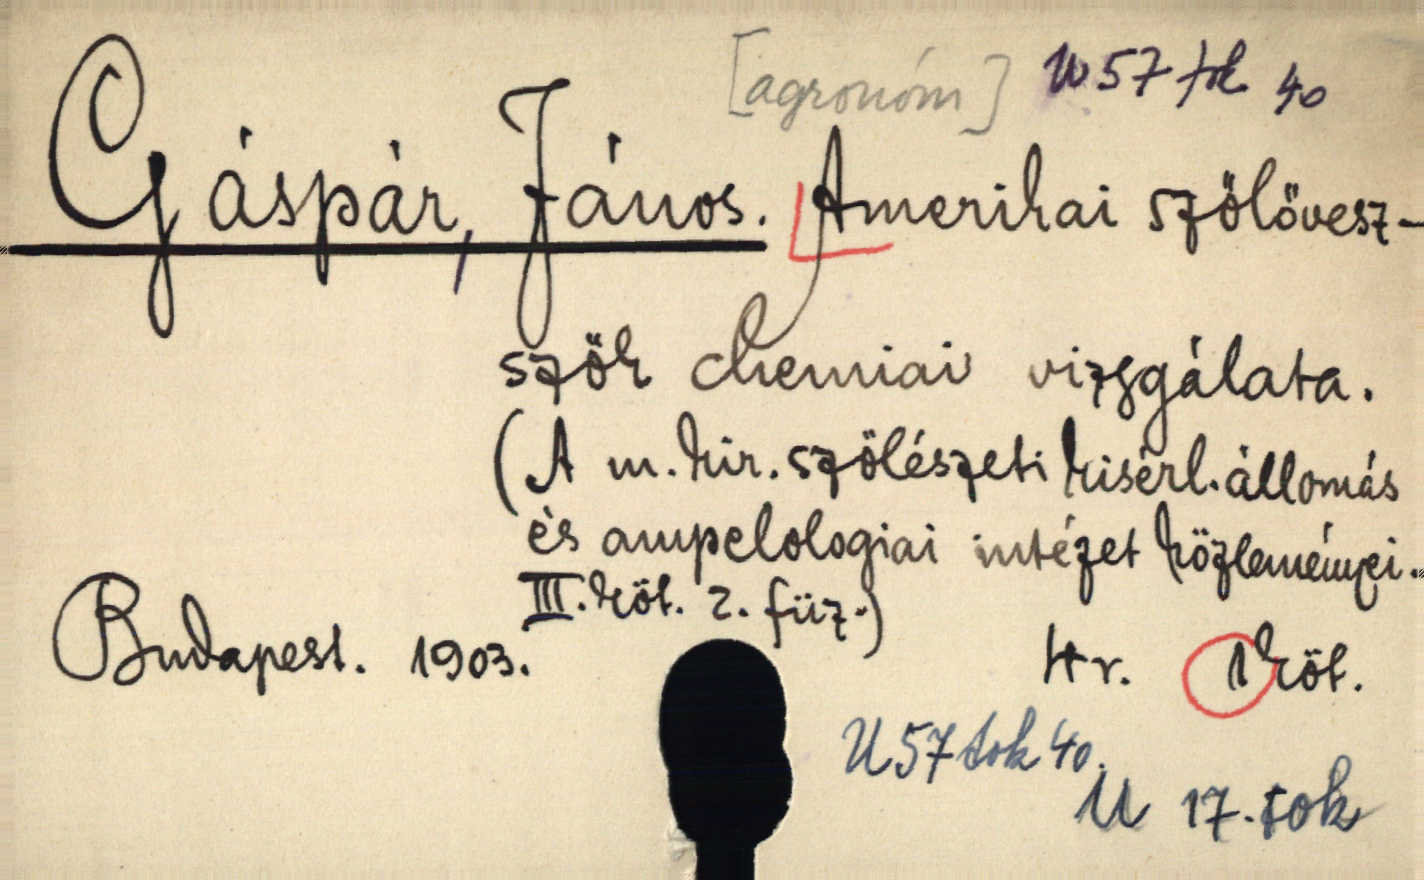 [agronóm] U 57 tok 40
Gáspár, János. Amerikai szőlővesz-
szők chemiai vizsgálata.
(A m. kir. szőlészeti kisérl. állomás
és ampelologiai intézet közleményei.
III. köt. 2. füz.)
Budapest. 1903.
4r. 1 köt.
U 57 tok 40.
U 17. tok